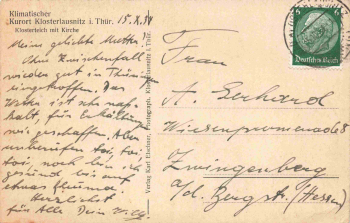 Klimatischer
Kurort Klosterlausnitz i. Thür.
Klosterteich mit Kirche
15.X.34
Meine geliebte Mutter.
Ohne Zwischenfall
wieder gut in Thüringen
eingetroffen. Das
Wetter ist sehr nass
kalt, für Erkältung
wie geschaffen. Aber
unberufen toi, toi,
toi, noch bin ich
gesund bis auf
etwas
Herzlichst
für Alle Dein Willy.
Verlag Karl Elschner, Photograph, Klosterlausnitz i. Thür.
Deutsches Reich
6
Frau
A. Gerhard
Wiesenpromenade 8
Zwingenberg
a/d. Bergstr. (Hessen)